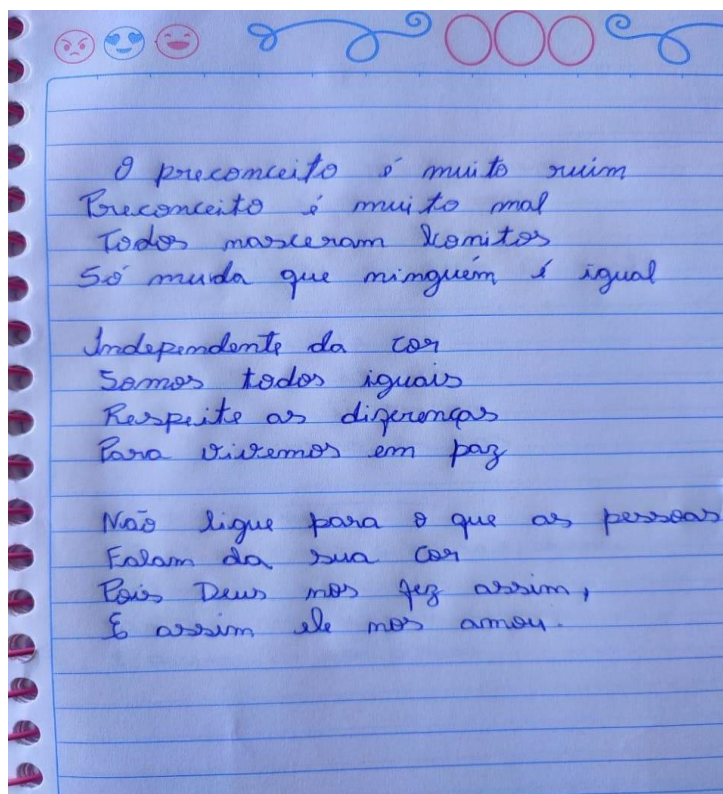 O preconceito é muito ruim
Preconceito é muito mal
Todos nasceram bonitos
Só muda que ninguém é igual
Independente da cor
Somos todos iguais
Respeite as diferenças
Para vivemos em paz
Não ligue para o que as pessoas
Falam da sua cor
Pois Deus nos fez assim,
E assim ele nos amou.